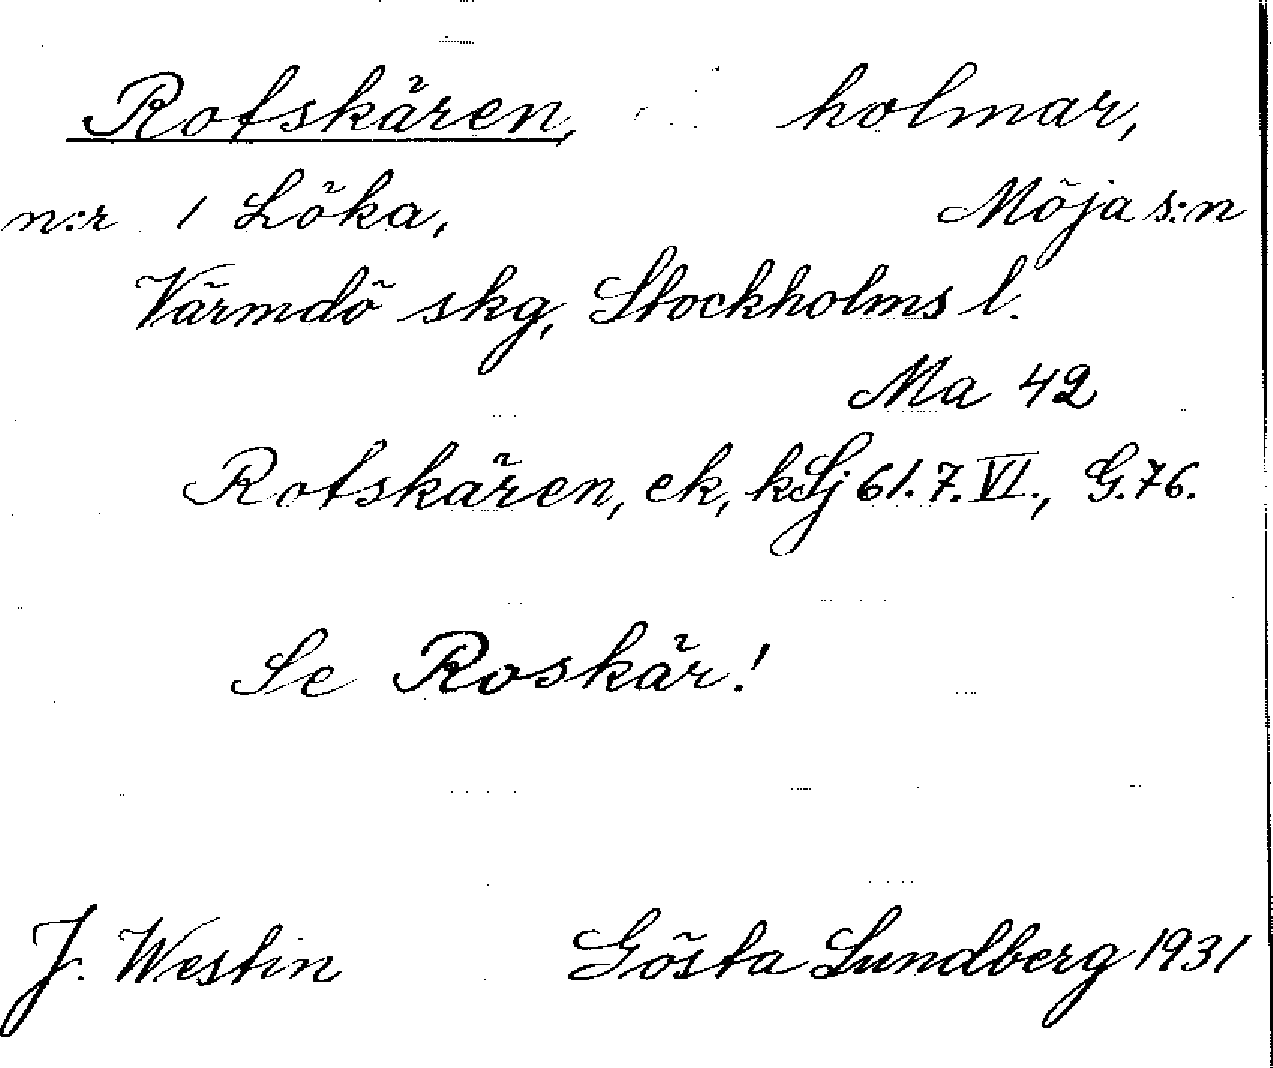 Rofskären, holmar,
n:r 1 Löka, Möja s:n
Värmdö skg, Stockholms l.
Ma 42
Rofskären, ek, kSj 61.7.VI., G.76.
Se Roskär!
J. Westin Gösta Lundberg 1931